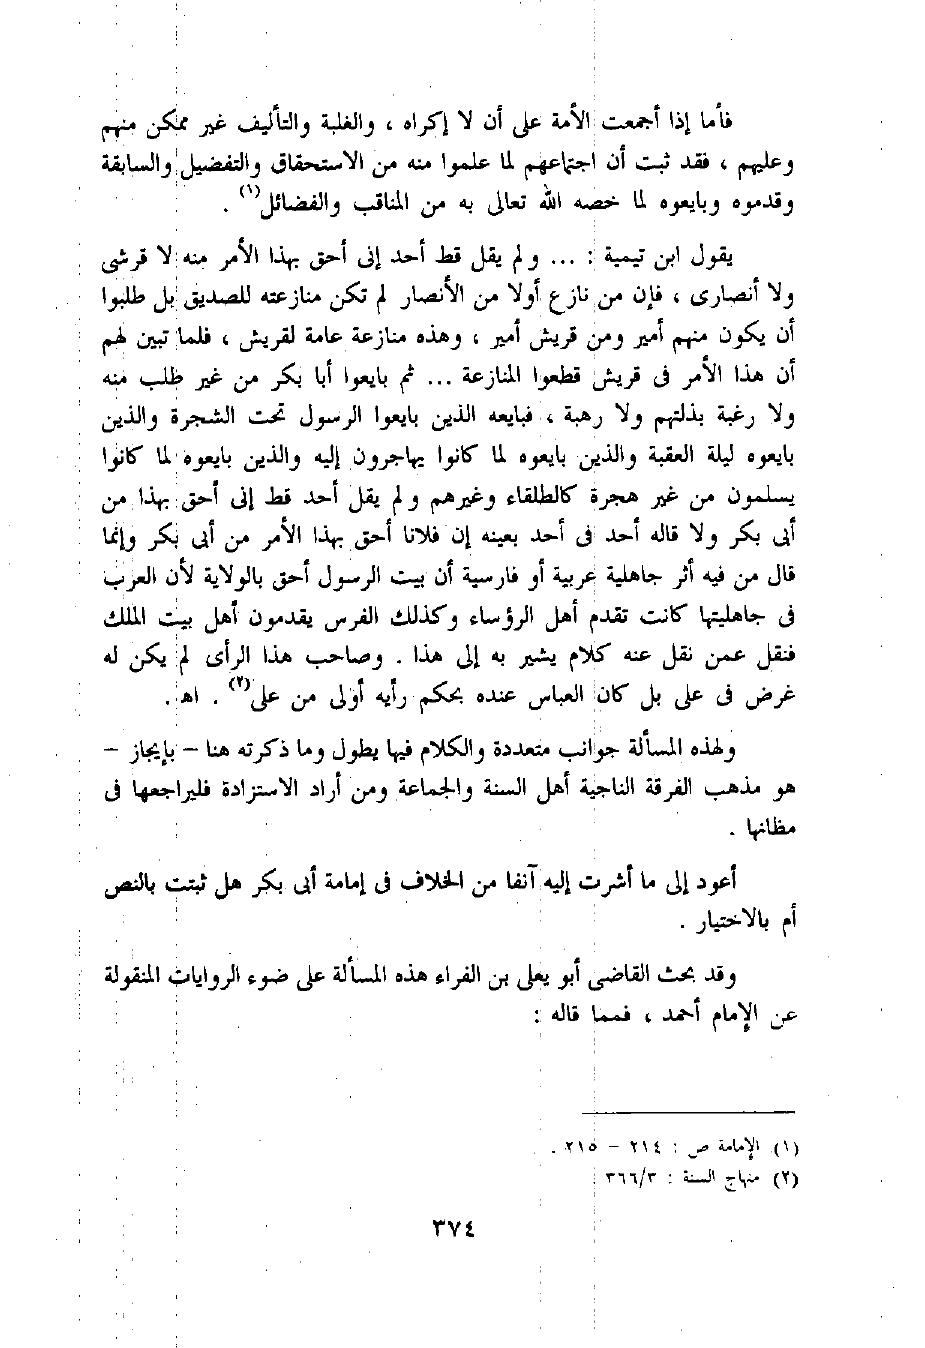 فأما إذا أجمعت الأمة على أن لا إكراه ، والغلبة والتأليف غير ممكن منهم
وعليهم ، فقد ثبت أن اجتماعهم لما علموا منه من الاستحقاق والتفضيل والسابقة
وقدموه وبايعوه لما خصه الله تعالى به من المناقب والفضائل(١) .
يقول ابن تيمية : ... ولم يقل قط أحد إنى أحق بهذا الأمر منه لا قرشى
ولا أنصارى ، فإن من نازع أولا من الأنصار لم تكن منازعته للصديق بل طلبوا
أن يكون منهم أمير ومن قريش أمير ، وهذه منازعة عامة لقريش ، فلما تبين لهم
أن هذا الأمر فى قريش قطعوا المنازعة ... ثم بايعوا أبا بكر من غير طلب منه
ولا رغبة بذلتهم ولا رهبة ، فبايعه الذين بايعوا الرسول تحت الشجرة والذين
بايعوه ليلة العقبة والذين بايعوه لما كانوا يهاجرون إليه والذين بايعوه لما كانوا
يسلمون من غير هجرة كالطلقاء وغيرهم ولم يقل أحد قط إنى أحق بهذا من
أبى بكر ولا قاله أحد فى أحد بعينه إن فلانا أحق بهذا الأمر من أبى بكر وإنما
قال من فيه أثر جاهلية عربية أو فارسية أن بيت الرسول أحق بالولاية لأن العرب
فى جاهليتها كانت تقدم أهل الرؤساء وكذلك الفرس يقدمون أهل بيت الملك
فنقل عمن نقل عنه كلام يشير به إلى هذا . وصاحب هذا الرأى لم يكن له
غرض فى على بل كان العباس عنده بحكم رأيه أولى من على(٢) . اهـ .
ولهذه المسألة جوانب متعددة والكلام فيها يطول وما ذكرته هنا – بإيجاز –
هو مذهب الفرقة الناجية أهل السنة والجماعة ومن أراد الاستزادة فليراجعها فى
مظانها .
أعود إلى ما أشرت إليه آنفا من الخلاف فى إمامة أبى بكر هل ثبتت بالنص
أم بالاختيار .
وقد بحث القاضى أبو يعلى بن الفراء هذه المسألة على ضوء الروايات المنقولة
عن الإمام أحمد ، فمما قاله :
(١) الإمامة ص : ٢١٤ – ٢١٥ .
(٢) منهاج السنة : ٣٦٦/٣
٣٧٤